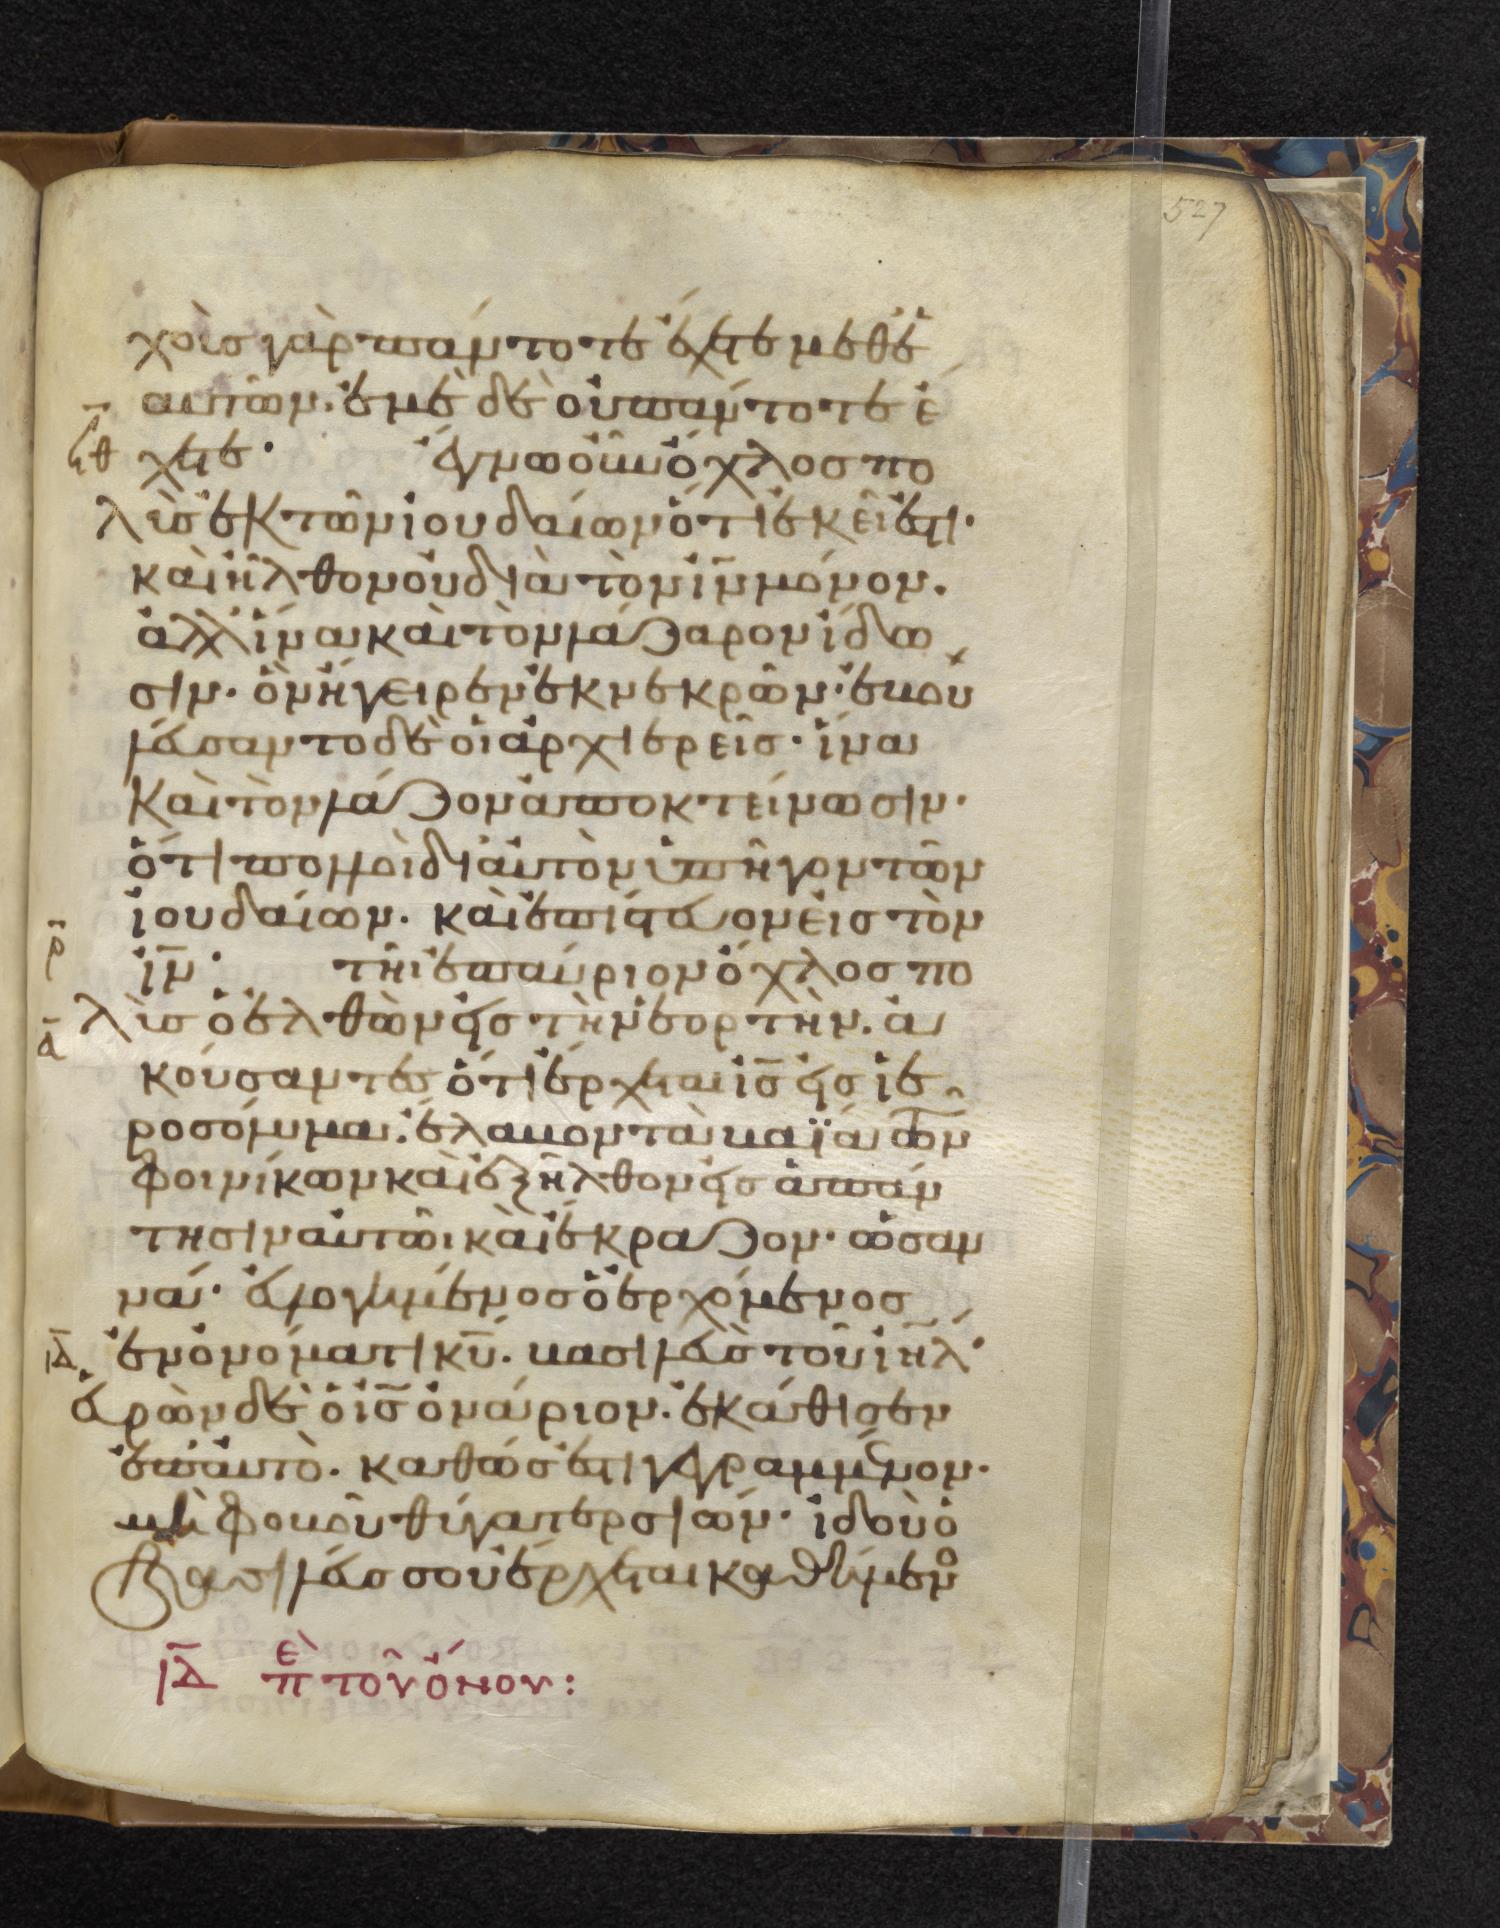 527
χοὺς γὰρ πάντοτε ἔχετε μεθ' ἑ
αυτῶν. ἐμὲ δὲ οὐ πάντοτε ἔ
ϟθ χετε· ἔγνω οὖν ὄχλος πο
λὺς ἐκ τῶν ἰουδαίων ὅτι ἐκεῖ ἐστι·
καὶ ἦλθον οὐ διὰ τὸν ἰν μόνον.
ἀλλ' ἵνα καὶ τὸν λάζαρον ἴδω
σιν. ὃν ἤγειρεν ἐκ νεκρῶν· ἐβου
λεύσαντο δὲ οἱ ἀρχιερεῖς· ἵνα
καὶ τὸν λάζαρον ἀποκτείνωσιν·
ὅτι πολλοὶ δι' αὐτὸν ὑπῆγον τῶν
ἰουδαίων. καὶ ἐπίστευον εἰς τὸν
ρ ἰν· τῆι ἐπαύριον ὄχλος πο
λὺς ὁ ἐλθὼν εἰς τὴν ἑορτὴν. ἀ
α
κούσαντες ὅτι ἔρχεται ἰς εἰς ἱε
ροσόλυμα. ἔλαβον τὰ βαΐα τῶν
φοινίκων καὶ ἐξῆλθον εἰς ἀπάν
τησιν αὐτῶι καὶ ἔκραζον· ὡσαν
νά· εὐλογημένος ὁ ἐρχόμενος
ιδ ἐν ὀνόματι κυ. βασιλεὺς τοῦ ιηλ·
εὑρὼν δὲ ὁ ἰς ὀνάριον. ἐκάθισεν
ἐπ' αὐτὸ. καθώς ἐστι γεγραμμένον·
μὴ φοβοῦ θύγατερ σιών· ἰδοὺ ὁ
βασιλεύς σου ἔρχεται καθήμενο
ιδ πε τοῦ ὄνου: